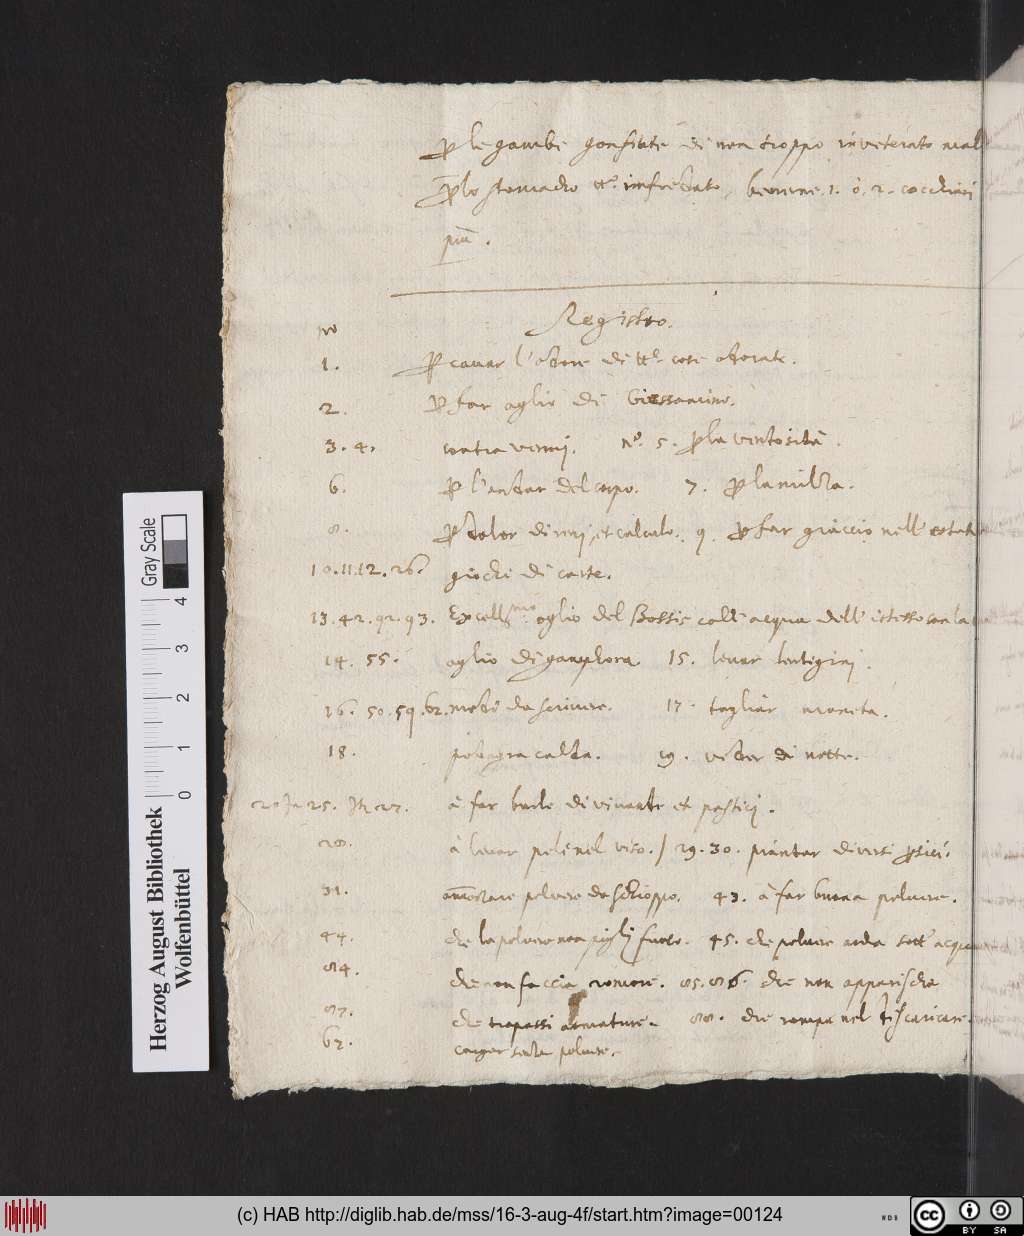 P le gambe gonfiate di non troppo inveterato mal
P lo stomacho etc. infredato, beverne 1. ò. 2. cocchiari
più.
Registro.
no
1. P cavar l'odore di tte cose odorate.
2. P far oglio di Giessamino.
3. 4. contra vermi. No. 5. P la ventosità.
6. P l'andar del corpo. 7. P la milza.
8. P dolor di reni, et calculo. 9. P far giaccio nell' estate
10. 11. 12. 26. giochi di carte.
13. 42. 92. 93. Excellmo oglio del coll' acqua dell' istesso con la
14. 55. oglio di gamphora. 15. levar lentigini.
16. 50. 59. 62. modi da scrivere. 17. tagliar moneta.
18. podagra calda. 19. veder di notte.
25. 27. à far burle di vivande et pastici.
28. à levar peli nel viso. / 29. 30. piantar diversi
31. ammorzare polvere da schioppo. 43. à far buona polvere.
44. che la polvere non pigli fuoco. 45. che polvere arda sott' acqua
84. che non faccia romore. 85. 86. che non apparischa
87. che trapassi armature. 88. che rompa nel discaricare.
67. senza polvere.
Gray Scale
0 1 2 3 4
Herzog August Bibliothek
Wolfenbüttel
(c) HAB http://diglib.hab.de/mss/16-3-aug-4f/start.htm?image=00124
WDB
cc BY SA